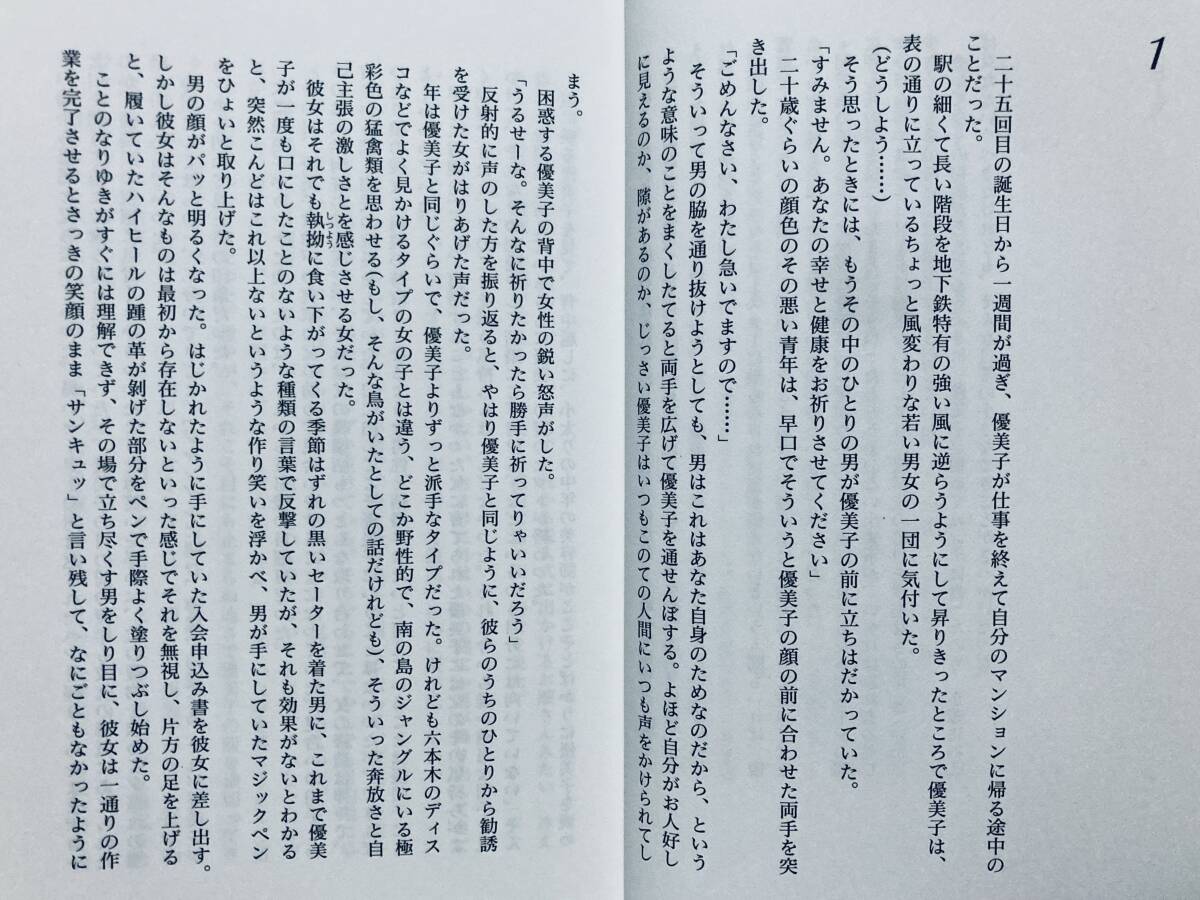 1
二十五回目の誕生日から一週間が過ぎ、優美子が仕事を終えて自分のマンションに帰る途中の
ことだった。
駅の細くて長い階段を地下鉄特有の強い風に逆らうようにして昇りきったところで優美子は、
表の通りに立っているちょっと風変わりな若い男女の一団に気付いた。
(どうしよう……)
そう思ったときには、もうその中のひとりの男が優美子の前に立ちはだかっていた。
「すみません。あなたの幸せと健康をお祈りさせてください」
二十歳ぐらいの顔色のその悪い青年は、早口でそういうと優美子の顔の前に合わせた両手を突
き出した。
「ごめんなさい、わたし急いでますので……」
そういって男の脇を通り抜けようとしても、男はこれはあなた自身のためなのだから、という
ような意味のことをまくしたてると両手を広げて優美子を通せんぼする。よほど自分がお人好し
に見えるのか、隙があるのか、じっさい優美子はいつもこのての人間にいつも声をかけられてし
まう。
困惑する優美子の背中で女性の鋭い怒声がした。
「うるせーな。そんなに祈りたかったら勝手に祈ってりゃいいだろう」
反射的に声のした方を振り返ると、やはり優美子と同じように、彼らのうちのひとりから勧誘
を受けた女がはりあげた声だった。
年は優美子と同じぐらいで、優美子よりずっと派手なタイプだった。けれども六本木のディス
コなどでよく見かけるタイプの女の子とは違う、どこか野性的で、南の島のジャングルにいる極
彩色の猛禽類を思わせる(もし、そんな鳥がいたとしての話だけれども)、そういった奔放さと自
己主張の激しさとを感じさせる女だった。
彼女はそれでも執拗に食い下がってくる季節はずれの黒いセーターを着た男に、これまで優美
しつよう
子が一度も口にしたことのないような種類の言葉で反撃していたが、それも効果がないとわかる
と、突然こんどはこれ以上ないというような作り笑いを浮かべ、男が手にしていたマジックペン
をひょいと取り上げた。
男の顔がパッと明るくなった。はじかれたように手にしていた入会申込み書を彼女に差し出す。
しかし彼女はそんなものは最初から存在しないといった感じでそれを無視し、片方の足を上げる
と、履いていたハイヒールの踵の革が剝げた部分をペンで手際よく塗りつぶし始めた。
ことのなりゆきがすぐには理解できず、その場で立ち尽くす男をしり目に、彼女は一通りの作
業を完了させるとさっきの笑顔のまま「サンキュッ」と言い残して、なにごともなかったように